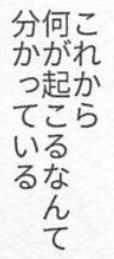 これから
何が起こるなんて
分かっている